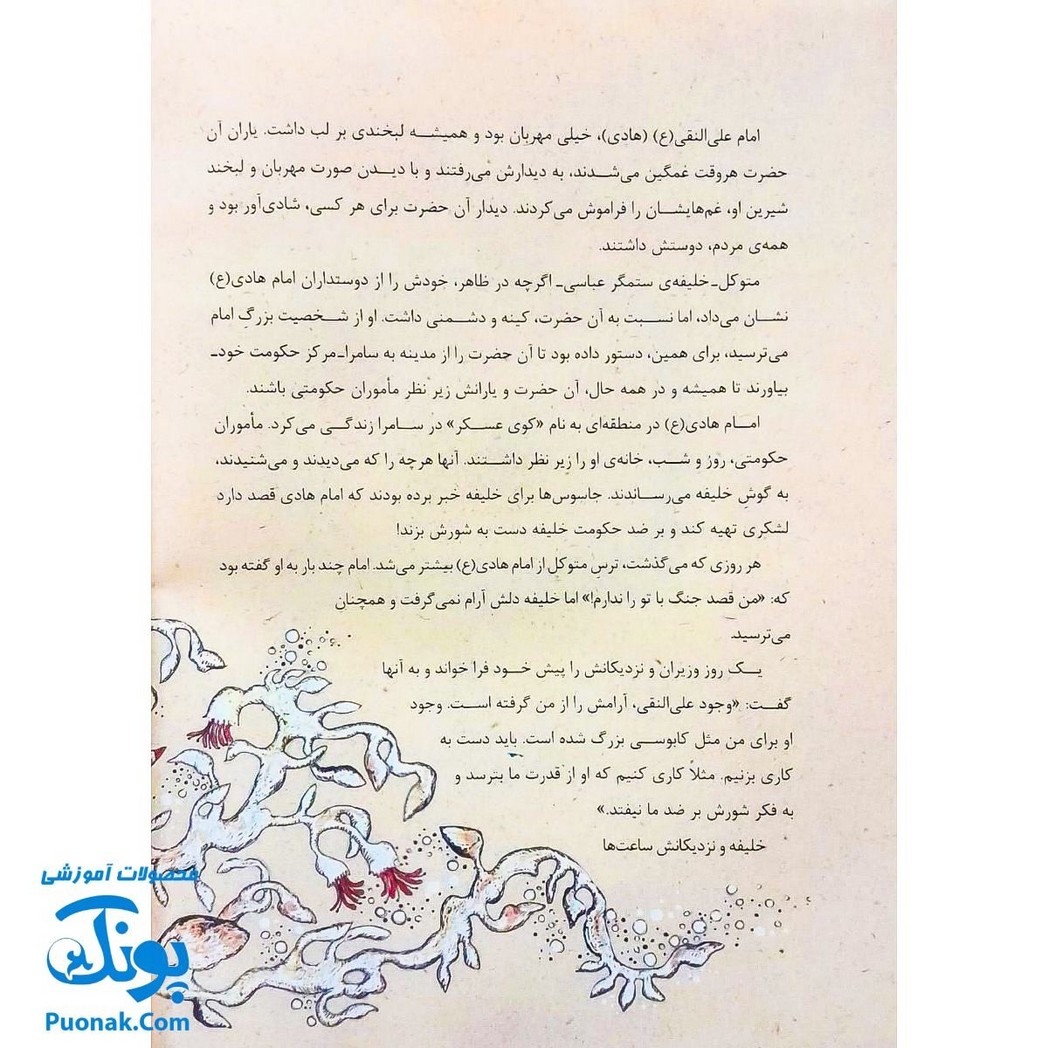 امام علی‌النقی(ع) (هادی)، خیلی مهربان بود و همیشه لبخندی بر لب داشت. یاران آن
حضرت هروقت غمگین می‌شدند، به دیدارش می‌رفتند و با دیدن صورت مهربان و لبخند
شیرین او، غم‌هایشان را فراموش می‌کردند. دیدار آن حضرت برای هر کسی، شادی‌آور بود و
همه‌ی مردم، دوستش داشتند.
متوکل-خلیفه‌ی ستمگر عباسی- اگرچه در ظاهر، خودش را از دوستداران امام هادی(ع)
نشان می‌داد، اما نسبت به آن حضرت، کینه و دشمنی داشت. او از شخصیت بزرگِ امام
می‌ترسید، برای همین، دستور داده بود تا آن حضرت را از مدینه به سامرا-مرکز حکومت خود-
بیاورند تا همیشه و در همه حال، آن حضرت و یارانش زیر نظر مأموران حکومتی باشند.
امام هادی(ع) در منطقه‌ای به نام «کوی عسکر» در سامرا زندگی می‌کرد. مأموران
حکومتی، روز و شب، خانه‌ی او را زیر نظر داشتند. آنها هرچه را که می‌دیدند و می‌شنیدند،
به گوشِ خلیفه می‌رساندند. جاسوس‌ها برای خلیفه خبر برده بودند که امام هادی قصد دارد
لشکری تهیه کند و بر ضد حکومت خلیفه دست به شورش بزند!
هر روزی که می‌گذشت، ترسِ متوکل از امام هادی(ع) بیشتر می‌شد. امام چند بار به او گفته بود
که: «من قصد جنگ با تو را ندارم!» اما خلیفه دلش آرام نمی‌گرفت و همچنان
می‌ترسید.
یک روز وزیران و نزدیکانش را پیش خود فرا خواند و به آنها
گفت: «وجود علی‌النقی، آرامش را از من گرفته است. وجود
او برای من مثل کابوسی بزرگ شده است. باید دست به
کاری بزنیم. مثلاً کاری کنیم که او از قدرت ما بترسد و
به فکر شورش بر ضد ما نیفتد.»
خلیفه و نزدیکانش ساعت‌ها
محصولات آموزشی
پونک
Puonak.Com